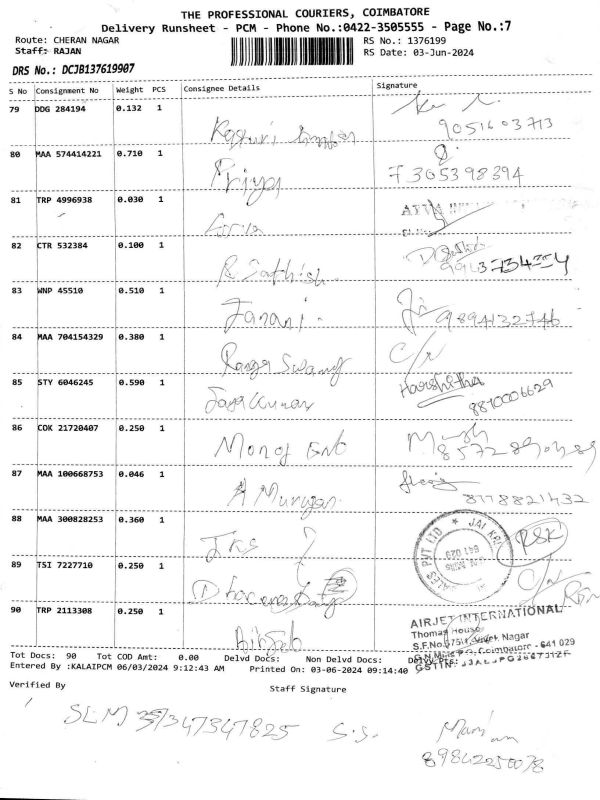 THE PROFESSIONAL COURIERS, COIMBATORE
Delivery Runsheet - PCM - Phone No.:0422-3505555 - Page No.:7
Route: CHERAN NAGAR RS No.: 1376199
Staff: RAJAN RS Date: 03-Jun-2024
DRS No.: DCJB137619907
S No Consignment No Weight PCS Consignee Details Signature
79 DDG 284194 0.132 1
9051603713
80 MAA 574414221 0.710 1 Priya 7305398394
81 TRP 4996938 0.030 1
82 CTR 532384 0.100 1 R Sathish
83 WNP 45510 0.510 1 Janani 9894132746
84 MAA 704154329 0.380 1 Ranga Swamy C/r
85 STY 6046245 0.590 1 Jaya Kumar Harshitha
8870006629
86 COK 21720407 0.250 1 Manoj
87 MAA 100668753 0.046 1 A Murugan 8778821432
88 MAA 300828253 0.360 1 RSK
JAI KRI
SALES PVT LTD
641 029
89 TSI 7227710 0.250 1
90 TRP 2113308 0.250 1 Airjet
AIRJET INTERNATIONAL
Thomas House
Nagar
Coimbatore - 641 029
Tot Docs: 90 Tot COD Amt: 0.00 Delvd Docs: Non Delvd Docs:
Entered By :KALAIPCM 06/03/2024 9:12:43 AM Printed On: 03-06-2024 09:14:40
Verified By Staff Signature
SLM 347347825 S.S.